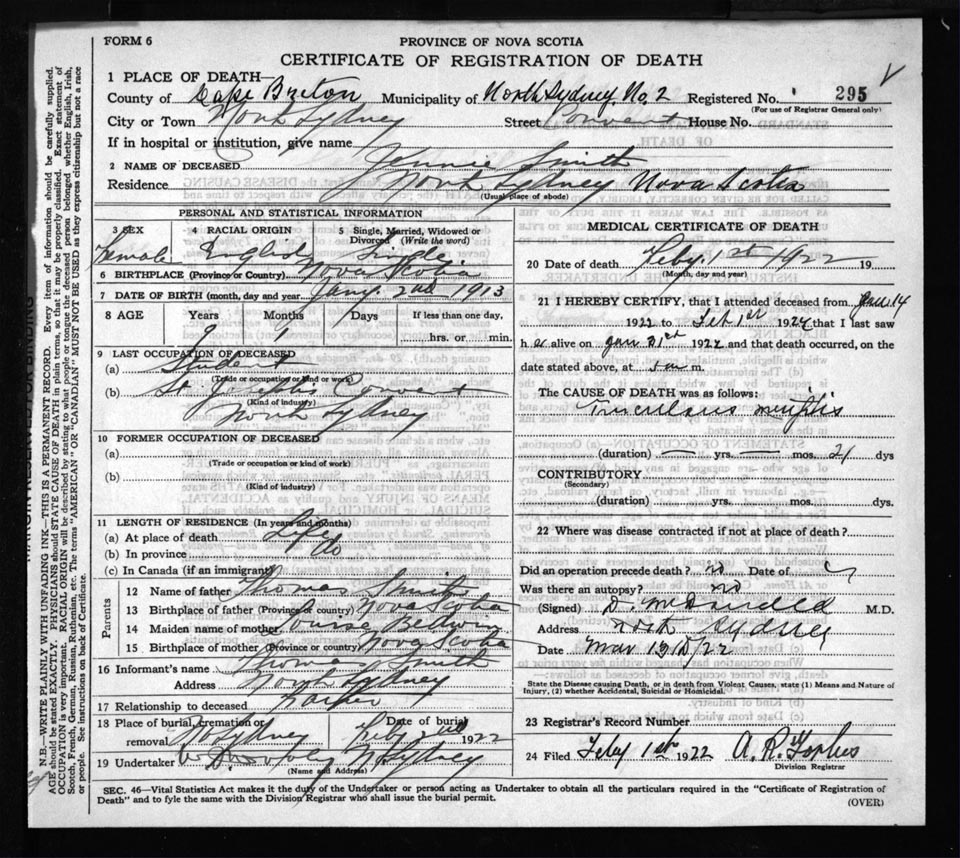 FORM 6
PROVINCE OF NOVA SCOTIA
CERTIFICATE OF REGISTRATION OF DEATH
1 PLACE OF DEATH—
County of Cape Breton Municipality of North Sydney No. 2 Registered No. 295
(For use of Registrar General only)
City or Town North Sydney Street Convent House No.
If in hospital or institution, give name
2 NAME OF DECEASED Jennie Smith
Residence North Sydney Nova Scotia
(Usual place of abode)
PERSONAL AND STATISTICAL INFORMATION
3 SEX 4 RACIAL ORIGIN 5 Single, Married, Widowed or Divorced (Write the word)
Female English Single
6 BIRTHPLACE (Province or Country) Nova Scotia
7 DATE OF BIRTH (month, day and year) Jany. 2nd 1913
8 AGE Years Months Days If less than one day,
9 1 hrs. or min.
9 LAST OCCUPATION OF DECEASED
(a) Student
(Trade or occupation or kind of work)
(b) St Joseph's Convent
(Kind of industry)
North Sydney
10 FORMER OCCUPATION OF DECEASED
(a)
(Trade or occupation or kind of work)
(b)
(Kind of industry)
11 LENGTH OF RESIDENCE (In years and months)
(a) At place of death Life
(b) In province do
(c) In Canada (if an immigrant)
Parents
12 Name of father Thomas Smith
13 Birthplace of father (Province or country) Nova Scotia
14 Maiden name of mother Louise
15 Birthplace of mother (Province or country) Nova Scotia
16 Informant's name Thomas Smith
Address North Sydney
17 Relationship to deceased Father
18 Place of burial, cremation or removal No Sydney Date of burial Feby 2nd 1922
19 Undertaker N Sydney
(Name and Address)
MEDICAL CERTIFICATE OF DEATH
20 Date of death Feby. 1st 1922 19
(Month, day and year)
21 I HEREBY CERTIFY, that I attended deceased from Jan. 14
1922 to Feb 1st 1922 that I last saw
h er alive on Jan 31st 1922 and that death occurred, on the
date stated above, at 5 a m.
The CAUSE OF DEATH was as follows:
(duration) — yrs. — mos. 21 dys
CONTRIBUTORY
(Secondary)
(duration) yrs. mos. dys.
22 Where was disease contracted if not at place of death?
Did an operation precede death? no Date of
Was there an autopsy? no
(Signed) M.D.
Address North Sydney
Date Mar 1922
State the Disease causing Death, or in death from Violent Causes, state (1) Means and Nature of
Injury, (2) whether Accidental, Suicidal or Homicidal.
23 Registrar's Record Number
24 Filed Feby 1st 1922 A. R. Forbes
Division Registrar
SEC. 46—Vital Statistics Act makes it the duty of the Undertaker or person acting as Undertaker to obtain all the particulars required in the "Certificate of Registration of
Death" and to fyle the same with the Division Registrar who shall issue the burial permit.
(OVER)
N.B.—WRITE PLAINLY WITH UNFADING INK—THIS IS A PERMANENT RECORD. Every item of information should be carefully supplied.
AGE should be stated EXACTLY. PHYSICIANS should STATE CAUSE OF DEATH in plain terms, so that it may be properly classified. Exact statement of
OCCUPATION is very important. RACIAL ORIGIN will be described by stating to what people or tongue the deceased person belonged whether English, Irish,
Scotch, French, German, Russian, Ruthenian, etc. The terms "AMERICAN" OR "CANADIAN" MUST NOT BE USED as they express citizenship but not a race
or people. See instructions on back of Certificate.